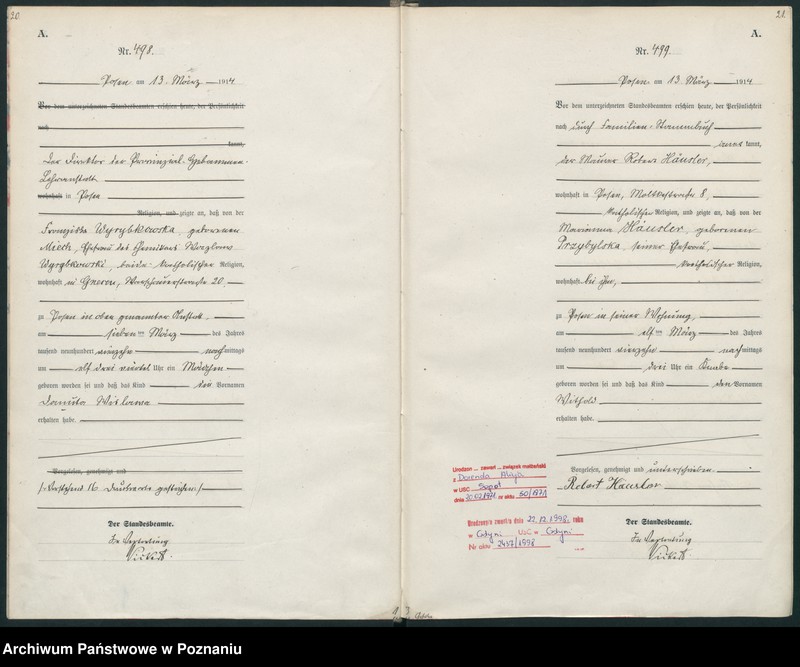 20.
A.
Nr. 498.
Posen am 13. März 1914
Vor dem unterzeichneten Standesbeamten erschien heute, der Persönlichkeit
nach
kannt,
der Direktor der Provinzial-Hebammen-
Lehranstalt
wohnhaft in Posen
Religion, und zeigte an, daß von der
Franziska Wyrybkowska, geborenen
Miech, Ehefrau des
Wyrybkowski, beide katholischer Religion,
wohnhaft in Gnesen, Warschauerstraße 20
zu Posen in oben genannter Anstalt,
am sieben ten März des Jahres
tausend neunhundert vierzehn nachmittags
um elf drei viertel Uhr ein Mädchen
geboren worden sei und daß das Kind die Vornamen
Danuta Wislawa
erhalten habe.
Vorgelesen, genehmigt und
/: Vorstehend 16 Druckworte gestrichen :/
Der Standesbeamte.
In Vertretung
21.
A.
Nr. 499.
Posen am 13. März 1914
Vor dem unterzeichneten Standesbeamten erschien heute, der Persönlichkeit
nach durch Familien-Stammbuch
kannt,
der Maurer Robert Häusler,
wohnhaft in Posen, Moltkestraße 8,
katholischer Religion, und zeigte an, daß von der
Marianna Häusler, geborenen
Przybylska, seiner Ehefrau,
katholischer Religion,
wohnhaft bei ihm,
zu Posen in seiner Wohnung,
am elf ten März des Jahres
tausend neunhundert vierzehn nachmittags
um drei Uhr ein Knabe
geboren worden sei und daß das Kind den Vornamen
Withold
erhalten habe.
Vorgelesen, genehmigt und unterschrieben.
Robert Häusler
Der Standesbeamte.
In Vertretung
związek małżeński
z Dorenda Alicja
w USC Sopot
dnia 20.02.1971 nr aktu 50/1971
zmarł/a dnia 22.12.1998. roku
w Gdyni USC w Gdyni
Nr aktu 2437/1998
Archiwum Państwowe w Poznaniu